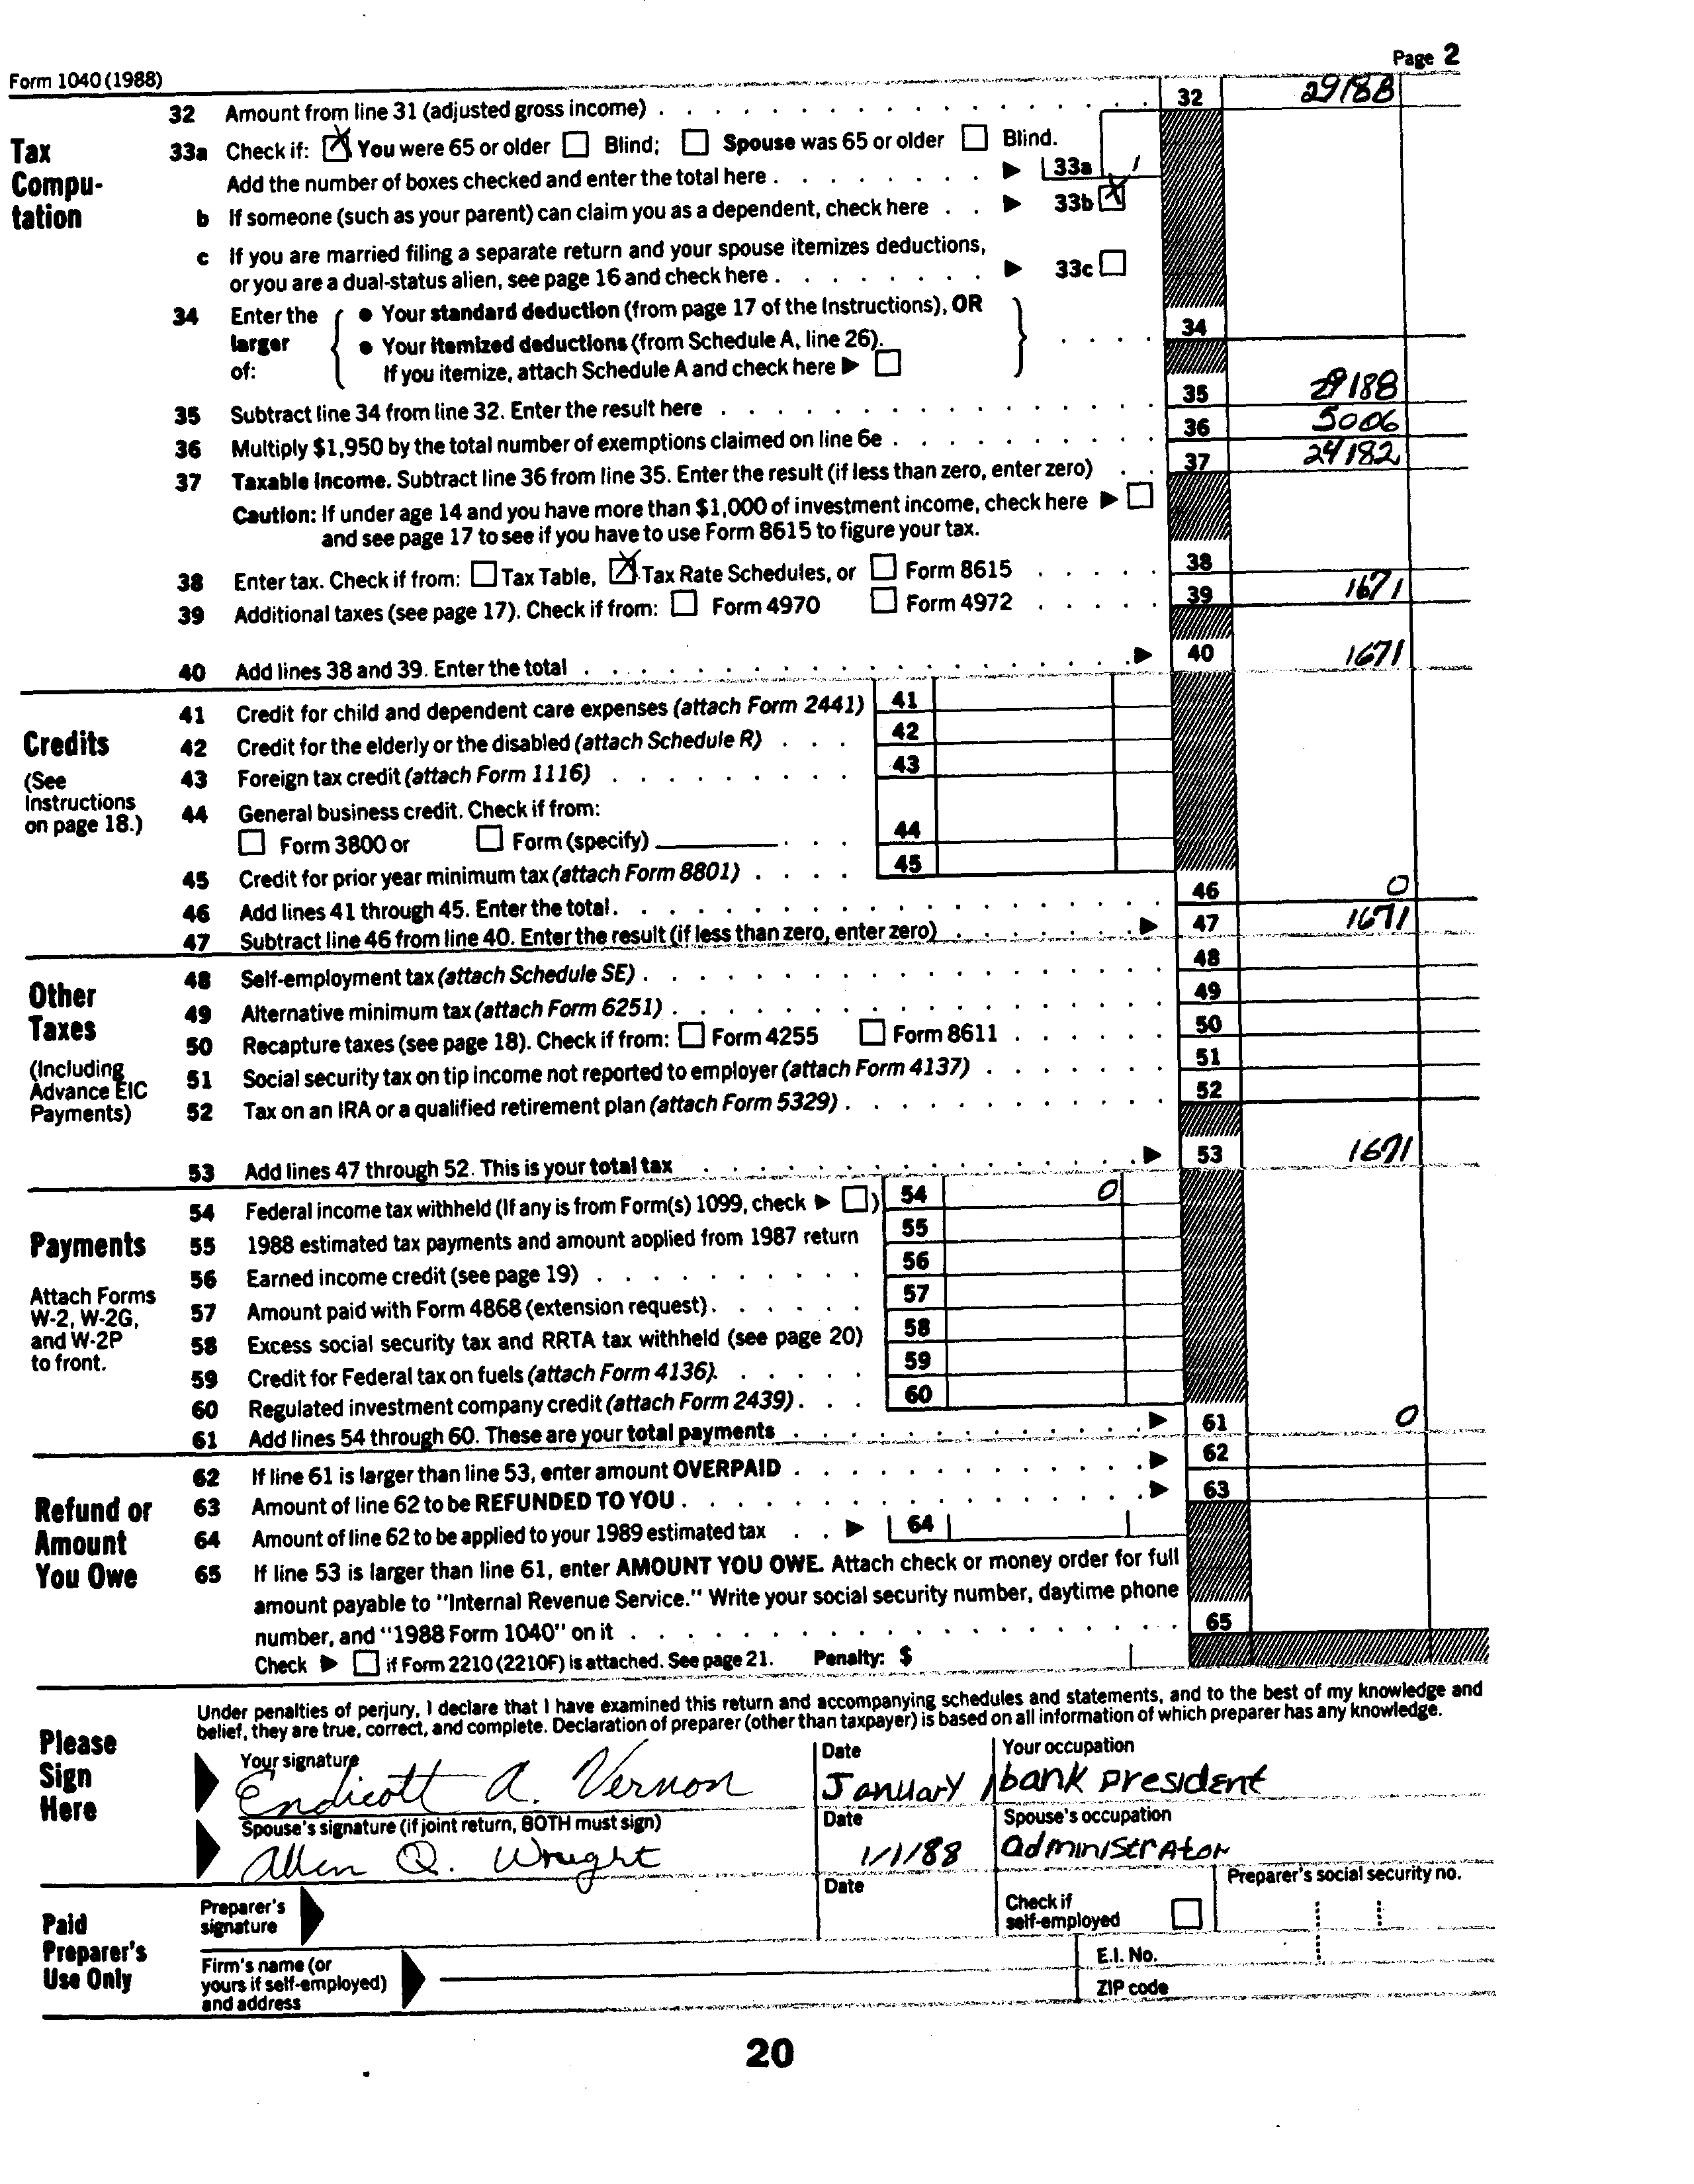 Page 2
Form 1040 (1988)
32 Amount from line 31 (adjusted gross income) 32 29188
Tax Compu-tation
33a Check if: You were 65 or older Blind; Spouse was 65 or older Blind.
Add the number of boxes checked and enter the total here 33a 1
b If someone (such as your parent) can claim you as a dependent, check here 33b X
c If you are married filing a separate return and your spouse itemizes deductions,
or you are a dual-status alien, see page 16 and check here 33c
34 Enter the larger of:
● Your standard deduction (from page 17 of the Instructions), OR
● Your itemized deductions (from Schedule A, line 26).
If you itemize, attach Schedule A and check here ▶ 34
35 Subtract line 34 from line 32. Enter the result here 35 29188
36 Multiply $1,950 by the total number of exemptions claimed on line 6e 36 5006
37 Taxable income. Subtract line 36 from line 35. Enter the result (if less than zero, enter zero) 37 24182
Caution: If under age 14 and you have more than $1,000 of investment income, check here ▶
and see page 17 to see if you have to use Form 8615 to figure your tax.
38 Enter tax. Check if from: Tax Table, X Tax Rate Schedules, or Form 8615 38
39 Additional taxes (see page 17). Check if from: Form 4970 Form 4972 39 1671
40 Add lines 38 and 39. Enter the total ▶ 40 1671
Credits
(See Instructions on page 18.)
41 Credit for child and dependent care expenses (attach Form 2441) 41
42 Credit for the elderly or the disabled (attach Schedule R) 42
43 Foreign tax credit (attach Form 1116) 43
44 General business credit. Check if from:
Form 3800 or Form (specify) 44
45 Credit for prior year minimum tax (attach Form 8801) 45
46 Add lines 41 through 45. Enter the total 46 0
47 Subtract line 46 from line 40. Enter the result (if less than zero, enter zero) ▶ 47 1671
Other Taxes
(Including Advance EIC Payments)
48 Self-employment tax (attach Schedule SE) 48
49 Alternative minimum tax (attach Form 6251) 49
50 Recapture taxes (see page 18). Check if from: Form 4255 Form 8611 50
51 Social security tax on tip income not reported to employer (attach Form 4137) 51
52 Tax on an IRA or a qualified retirement plan (attach Form 5329) 52
53 Add lines 47 through 52. This is your total tax ▶ 53 1671
Payments
Attach Forms W-2, W-2G, and W-2P to front.
54 Federal income tax withheld (If any is from Form(s) 1099, check ▶ ) 54 0
55 1988 estimated tax payments and amount applied from 1987 return 55
56 Earned income credit (see page 19) 56
57 Amount paid with Form 4868 (extension request) 57
58 Excess social security tax and RRTA tax withheld (see page 20) 58
59 Credit for Federal tax on fuels (attach Form 4136) 59
60 Regulated investment company credit (attach Form 2439) 60
61 Add lines 54 through 60. These are your total payments ▶ 61 0
Refund or Amount You Owe
62 If line 61 is larger than line 53, enter amount OVERPAID ▶ 62
63 Amount of line 62 to be REFUNDED TO YOU ▶ 63
64 Amount of line 62 to be applied to your 1989 estimated tax ▶ 64
65 If line 53 is larger than line 61, enter AMOUNT YOU OWE. Attach check or money order for full
amount payable to "Internal Revenue Service." Write your social security number, daytime phone
number, and "1988 Form 1040" on it 65
Check ▶ if Form 2210 (2210F) is attached. See page 21. Penalty: $
Please Sign Here
Under penalties of perjury, I declare that I have examined this return and accompanying schedules and statements, and to the best of my knowledge and
belief, they are true, correct, and complete. Declaration of preparer (other than taxpayer) is based on all information of which preparer has any knowledge.
Your signature Date Your occupation
Endicott A. Vernon January 1 bank president
Spouse's signature (if joint return, BOTH must sign) Date Spouse's occupation
Allen Q. Wright 1/1/88 administrator
Paid Preparer's Use Only
Preparer's signature Date Check if self-employed Preparer's social security no.
Firm's name (or yours if self-employed) and address
E.I. No.
ZIP code
20